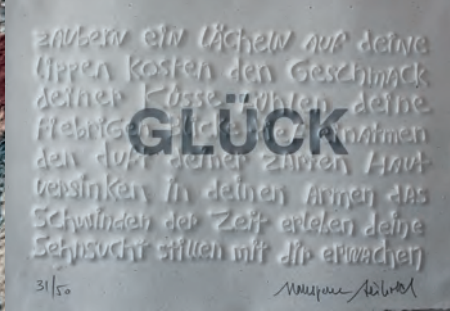 zaubern ein Lächeln auf deine
Lippen kosten den Geschmack
deiner Küsse fühlen deine
fiebrigen Blicke einatmen
GLÜCK
den Duft deiner zarten Haut
versinken in deinen Armen das
Schwinden der Zeit erleben deine
Sehnsucht stillen mit dir erwachen
31/50